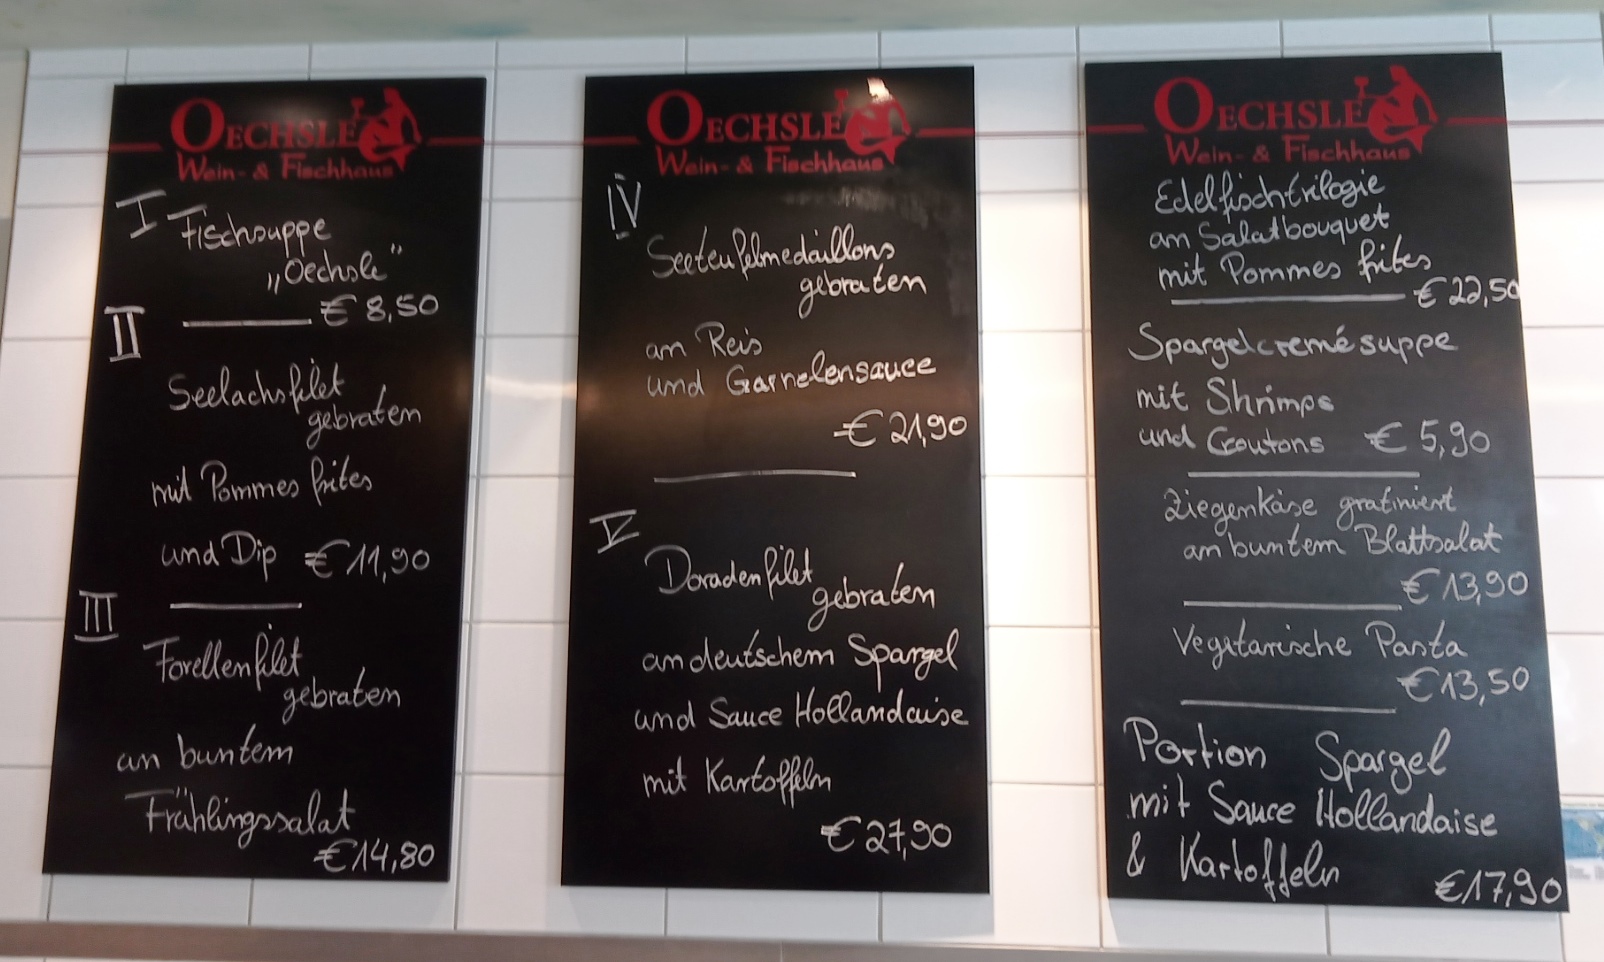 OECHSLE
Wein- & Fischhaus
I
Fischsuppe
„Oechsle"
€ 8,50
II
Seelachsfilet
gebraten
mit Pommes frites
und Dip € 11,90
III
Forellenfilet
gebraten
an buntem
Frühlingssalat
€ 14,80
OECHSLE
Wein- & Fischhaus
IV
Seeteufelmedaillons
gebraten
an Reis
und Garnelensauce
€ 21,90
V
Doradenfilet
gebraten
an deutschem Spargel
und Sauce Hollandaise
mit Kartoffeln
€ 27,90
OECHSLE
Wein- & Fischhaus
Edelfischtrilogie
am Salatbouquet
mit Pommes frites
€ 22,50
Spargelcremésuppe
mit Shrimps
und Croutons € 5,90
Ziegenkäse gratiniert
an buntem Blattsalat
€ 13,90
Vegetarische Pasta
€ 13,50
Portion Spargel
mit Sauce Hollandaise
& Kartoffeln
€ 17,90